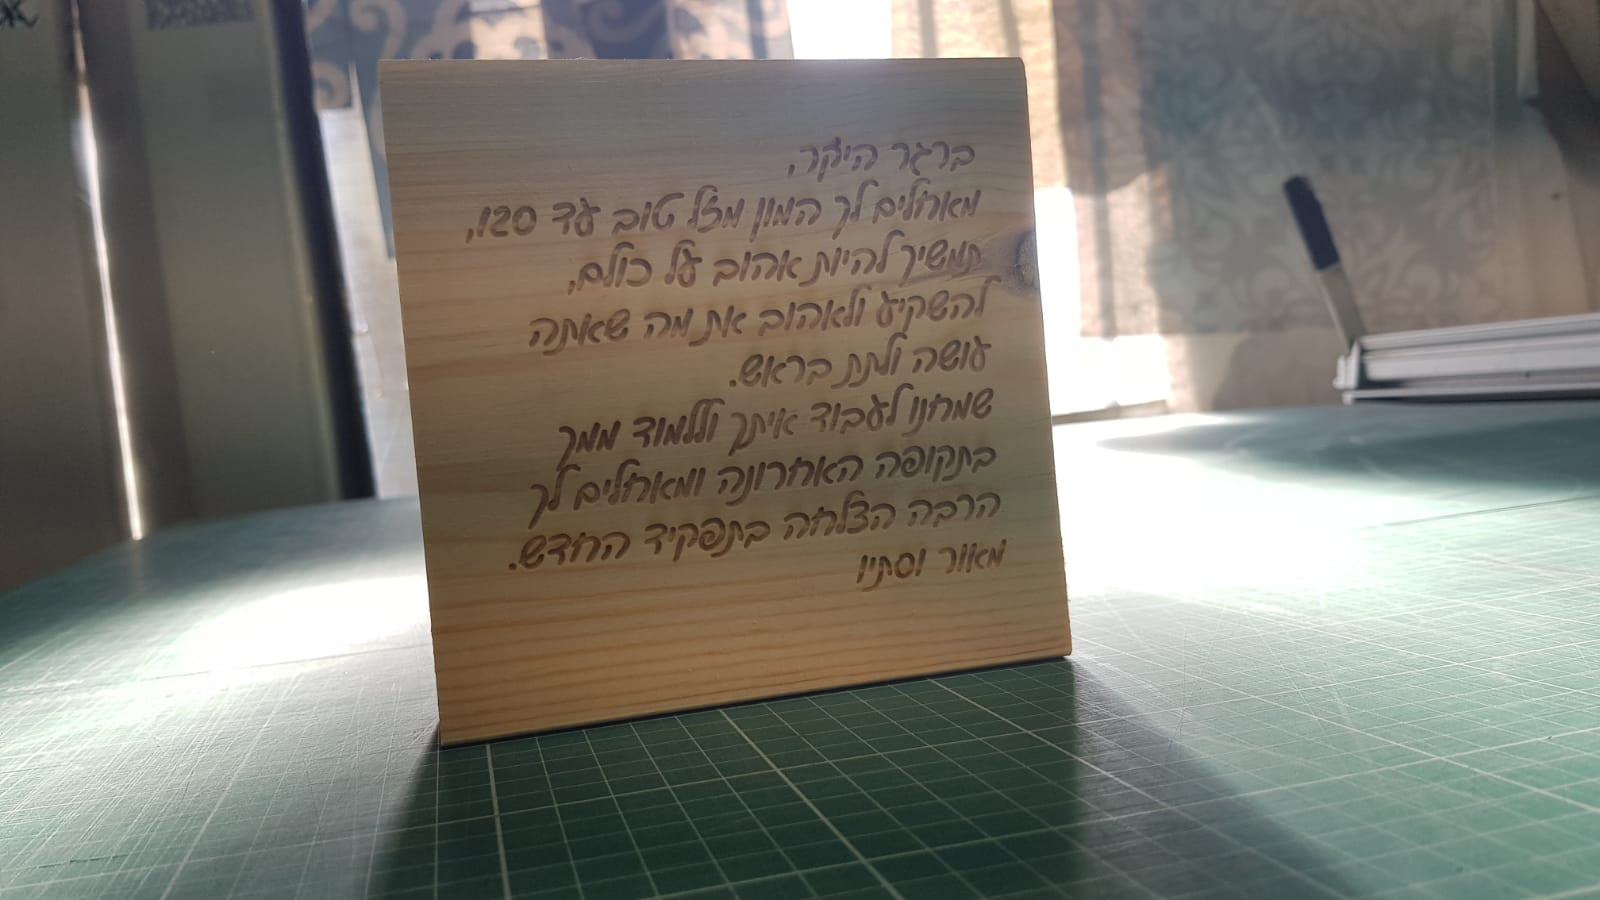 ברגר היקר,
מאחלים לך המון מזל טוב עד 120,
תמשיך להיות אהוב על כולם,
להשקיע ולאהוב את מה שאתה
עושה ולתת בראש.
שמחנו לעבוד איתך וללמוד ממך
בתקופה האחרונה ומאחלים לך
הרבה הצלחה בתפקיד החדש.
מאור וסתיו